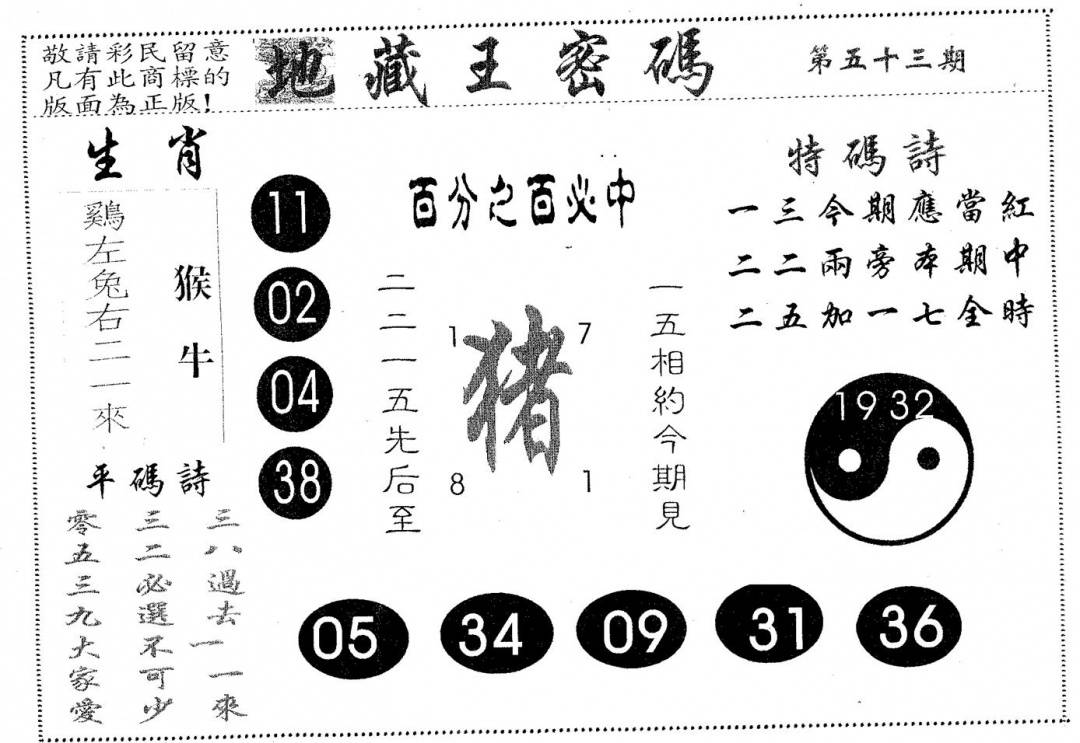 敬請彩民留意
凡有此商標的
版面為正版!
地藏王密碼
第五十三期
生肖
鷄左兔右二一來
猴牛
平碼詩
三八過去一一來
三二必選不可少
零五三九大家愛
11
02
04
38
百分之百必中
二二一五先后至
1
7
猪
8
1
一五相約今期見
特碼詩
一三今期應當紅
二二兩旁本期中
二五加一七全時
19 32
05
34
09
31
36